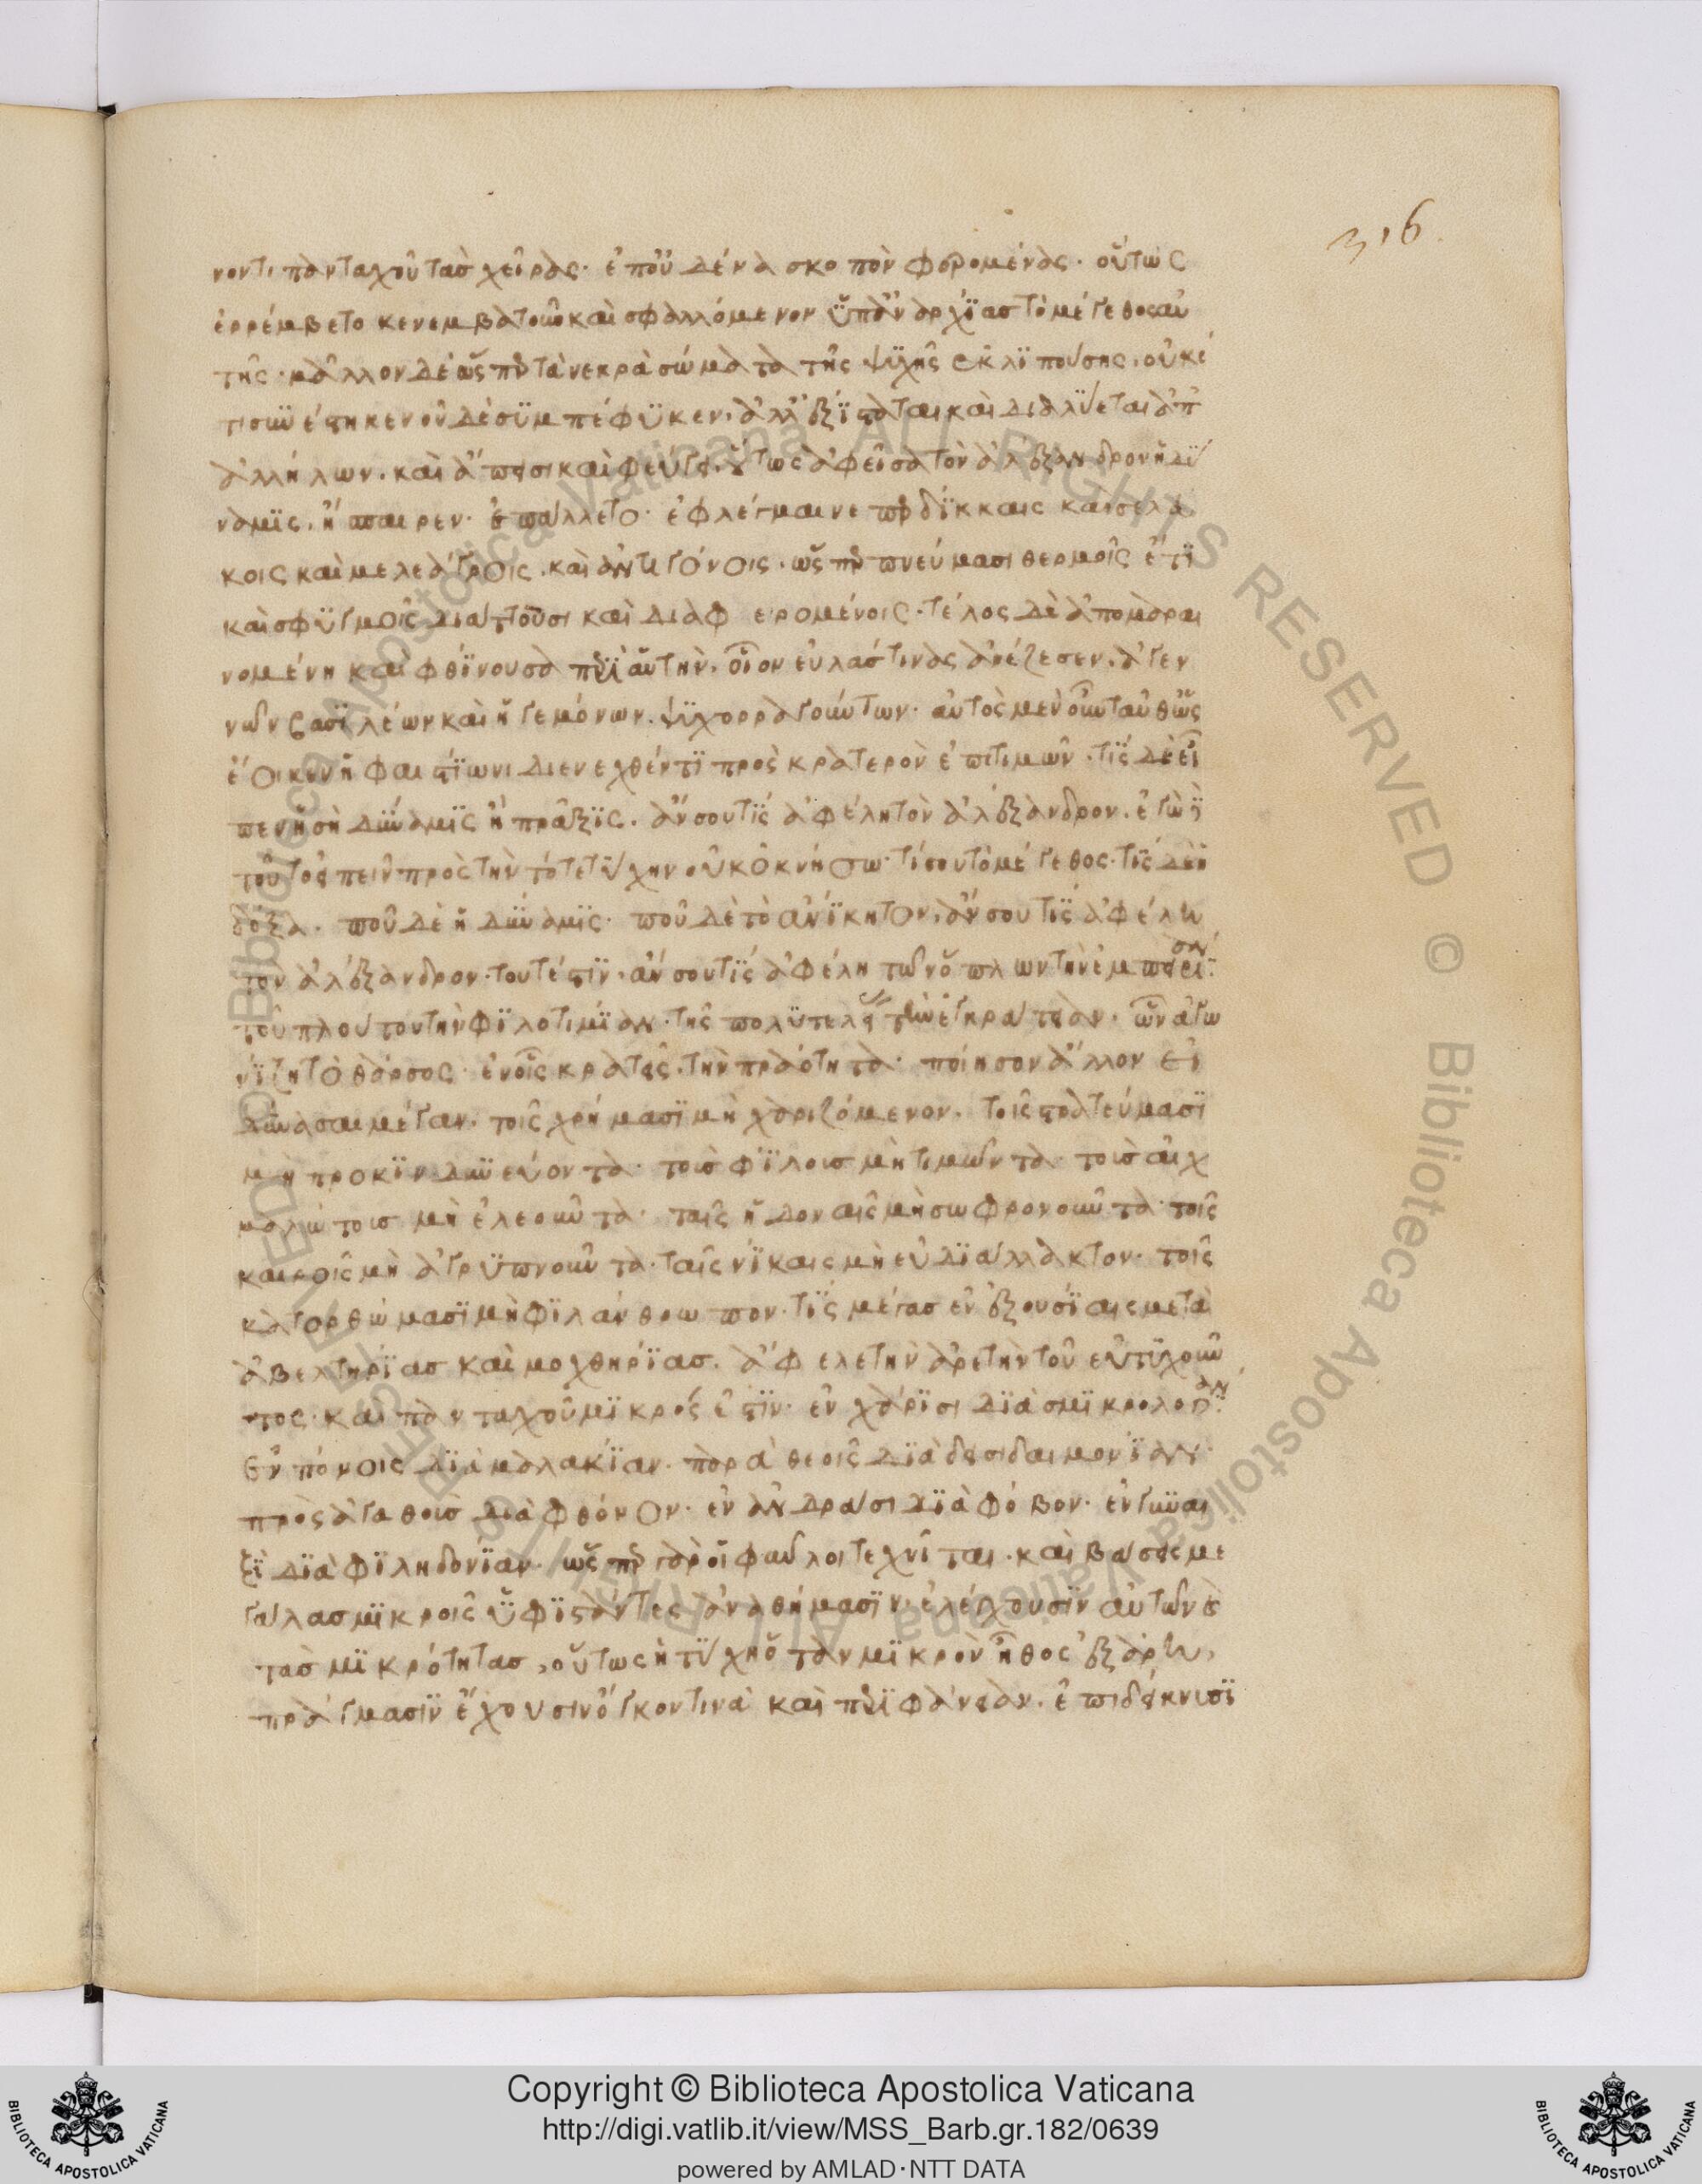 316
νοντι πανταχοῦ τὰσ χεῖρας· ἐπ' οὐδένα σκοπὸν φερομένας· οὕτως
ἐρρέμβετο κενεμβατοῦν καὶ σφαλλόμενον ὑπ' ἀναρχίασ τὸ μέγεθος αὐ
τῆς· μᾶλλον δὲ ὥσπερ τὰ νεκρὰ σώματα τῆς ψυχῆς ἐκλιπούσης· οὐκέ
τι συνέστηκεν οὐδὲ συμπέφυκεν· ἀλλ' ἐξίσταται καὶ διαλύεται ἀπ'
ἀλλήλων· καὶ ἄπεισι καὶ φεύγει· οὕτως ἀφεῖσα τὸν ἀλέξανδρον ἡ δύ
ναμις· ἤσπαιρεν· ἐπάλλετο· ἐφλέγμαινε περδίκκαις καὶ σελεύ
κοις καὶ μελεάγροις· καὶ ἀντιγόνοις· ὥσπερ πνεύμασι θερμοῖς ἔτι
καὶ σφυγμοῖς διάττουσι καὶ διαφ ερομένοις· τέλος δὲ ἀπομαραι
νομένη καὶ φθίνουσα περὶ αὑτὴν· οἷον εὐλάς τινας ἀνέζεσεν· ἀγεν
νῶν βασιλέων καὶ ἡγεμόνων· ψυχορραγούντων· αὐτὸς μὲν οὖν ταῦθ' ὡς
ἔοικεν ἡφαιστίωνι διενεχθέντι πρὸς κρατερὸν ἐπιτιμῶν· τίς δ' εἶ
πεν ἡ σὴ δύναμις ἢ πρᾶξις· ἄν σου τίς ἀφέλη τὸν ἀλέξανδρον· ἐγὼ
τοῦτ' εἰπεῖν πρὸς τὴν τότε τύχην οὐκ ὀκνήσω· τί σου τὸ μέγεθος· τίς δὲ ἡ
δόξα· ποῦ δὲ ἡ δύναμις· ποῦ δὲ τὸ ἀνίκητον· ἄν σου τίς ἀφέλη
τὸν ἀλέξανδρον· τουτέστιν· ἄν σου τίς ἀφέλη τῶν ὅπλων τὴν ἐμπειρί
τοῦ πλούτου τὴν φιλοτιμίαν· τῆς πολυτελεί τὴν ἐγκράτειαν· ὧν ἀγω
νίζη τὸ θάρσος· ἐν οἷς κρατεῖς· τὴν πραότητα· ποίησον ἄλλον εἰ
δύνασαι μέγαν· τοῖς χρήμασι μὴ χαριζόμενον· τοῖς στρατεύμασι
μὴ προκινδυνεύοντα· τοῖσ φίλοισ μὴ τιμῶντα· τοῖσ αἰχ
μαλώτοισ μὴ ἐλεοῦντα· ταῖς ἡδοναῖς μὴ σωφρονοῦντα· τοῖς
καιροῖς μὴ ἀγρυπνοῦντα· ταῖς νίκαις μὴ εὐδιάλλακτον· τοῖς
κατορθώμασι μὴ φιλάνθρωπον· τίς μέγασ ἐν ἐξουσίαις μετὰ
ἀβελτηρίασ καὶ μοχθηρίασ· ἄφελε τὴν ἀρετὴν τοῦ εὐτυχοῦν
τος· καὶ πανταχοῦ μικρός ἐστιν· ἐν χάρισι διὰ σμικρολογίαν
ἐν πόνοις διὰ μαλακίαν· παρὰ θεοῖς διὰ δεισιδαιμονίαν·
πρὸς ἀγαθοὺσ διὰ φθόνον· ἐν ἀνδράσι διὰ φόβον· ἐν γυναι
ξὶ διὰ φιληδονίαν· ὥσπερ γὰρ οἱ φαῦλοι τεχνῖται· καὶ βάσεις με
γάλασ μικροῖς ὑφιστάντες ἀναθήμασιν· ἐλέγχουσιν αὐτῶν
τὰσ μικρότητασ, οὕτως ἡ τύχη ὅταν μικρὸν ἦθος ἐξάρη,
πράγμασιν ἔχουσιν ὄγκον τινὰ καὶ περιφάνειαν· ἐπιδείκνυσι
Copyright © Biblioteca Apostolica Vaticana
http://digi.vatlib.it/view/MSS_Barb.gr.182/0639
powered by AMLAD·NTT DATA